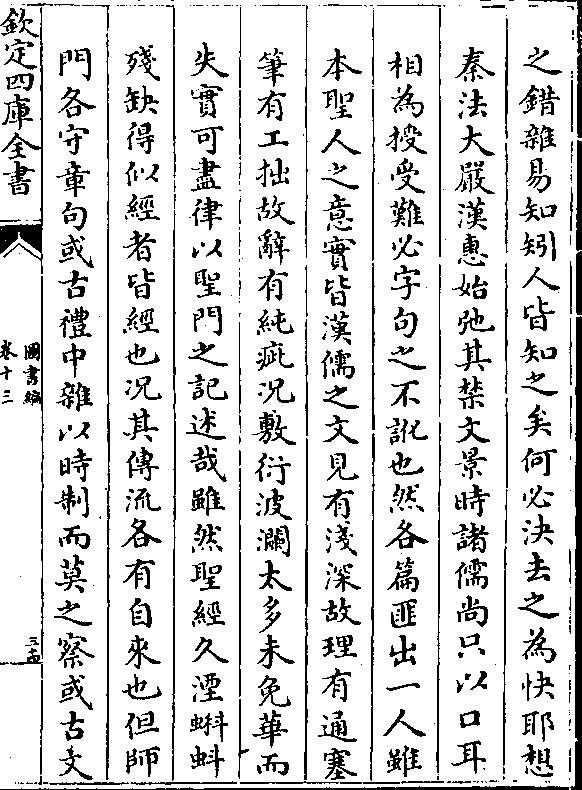 之錯雜易知矧人皆知之矣何必決去之為快耶想
秦法大嚴漢惠始弛其禁文景時諸儒尚只以口耳
相為授受難必字句之不訛也然各篇匪出一人雖
本聖人之意實皆漢儒之文見有淺深故理有通塞
筆有工拙故辭有純疵况敷衍波瀾太多未免華而
失實可盡律以聖門之記述哉雖然聖經久湮蝌蚪
殘缺得似經者皆經也况其傳流各有自來也但師
門各守章句或古禮中雜以時制而莫之察或古文
欽定四庫全書
圖書編
卷十三
三十四